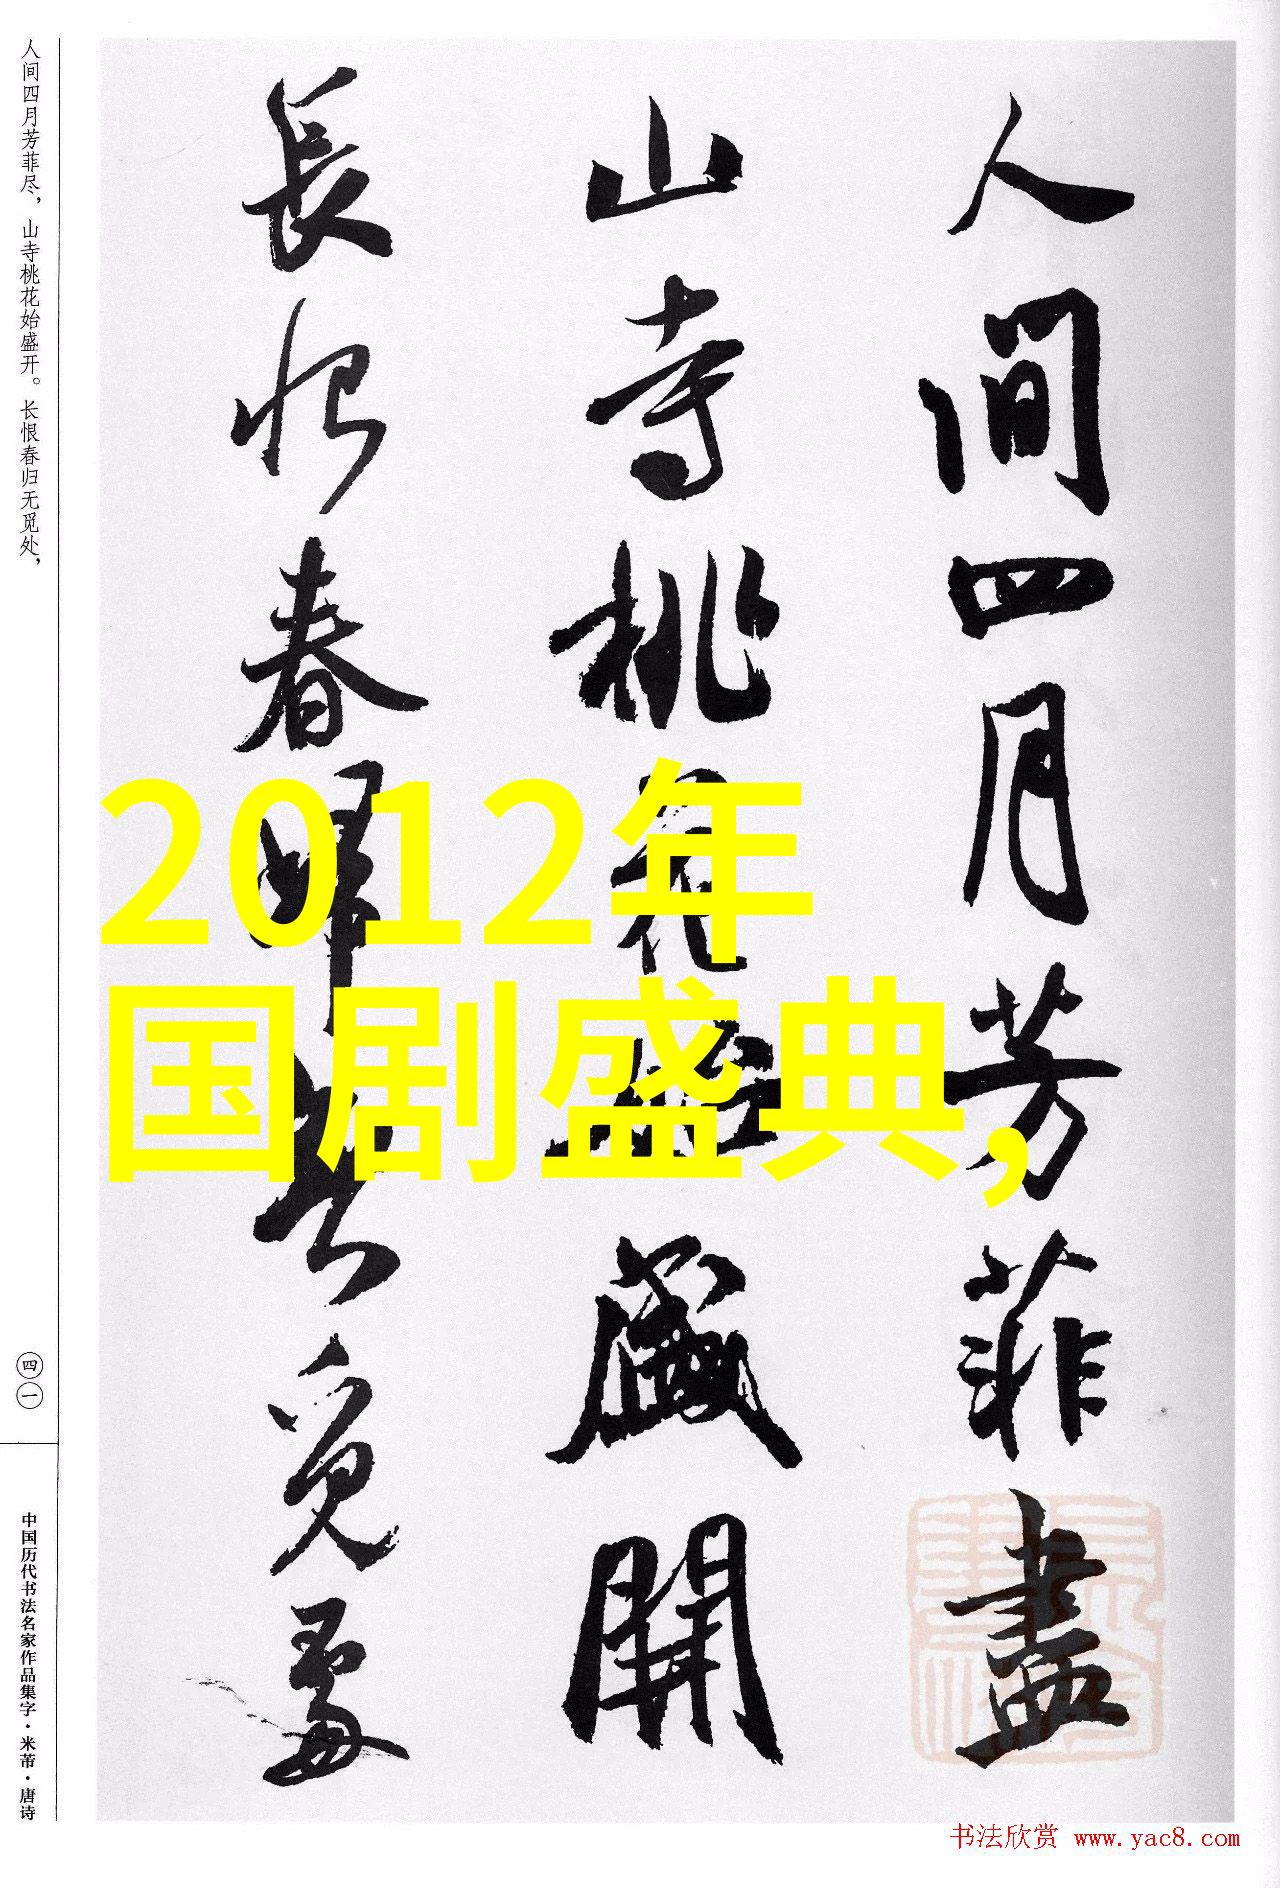 人间四月芳菲尽，山寺桃花始盛开。长恨春归无觅处，
人間四月芳菲盡
山寺桃花始盛開
長恨春歸無覓處
2012年
国剧盛典，
四一
中国历代书法名家作品集字·米芾·唐诗
书法欣赏 www.yac8.com